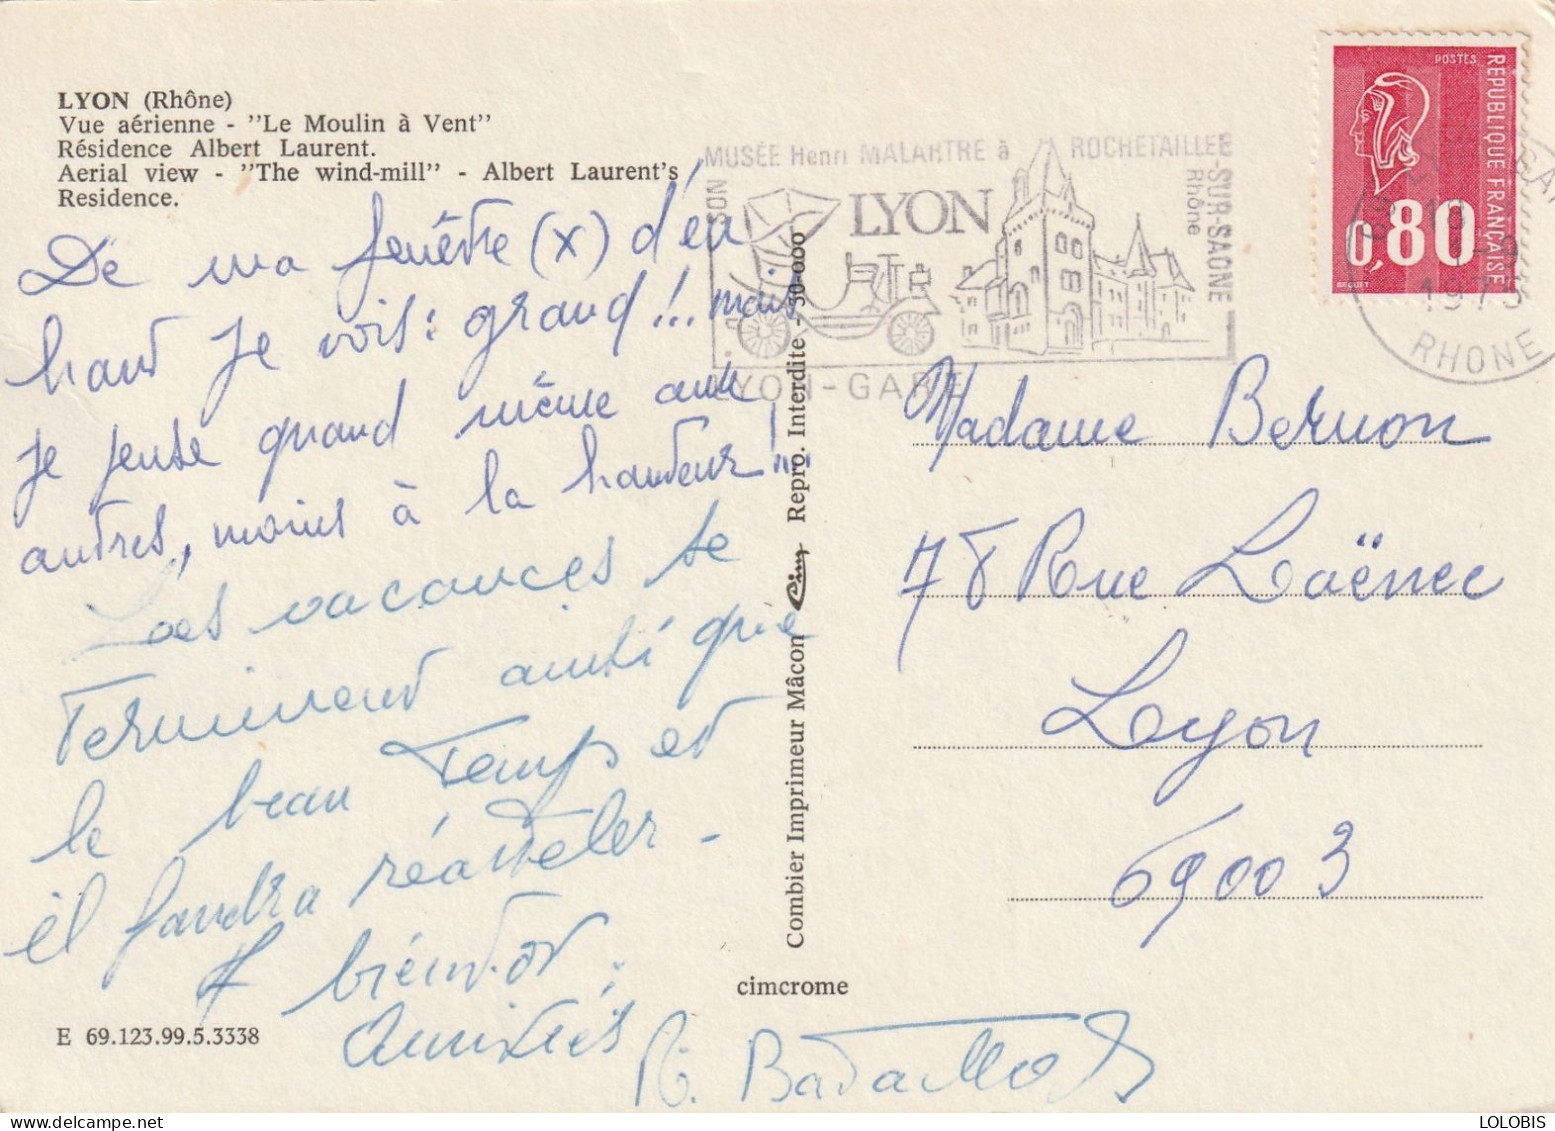 LYON (Rhône)
Vue aérienne - "Le Moulin à Vent"
Résidence Albert Laurent.
Aerial view - "The wind-mill" - Albert Laurent's
Residence.
De ma fenêtre (x) d'en
haut je vois : grand !!! mais
je pense quand même aux
autres, moins à la hauteur !!!
Les vacances se
terminent ainsi que
le beau temps et
il faudra réatteler -
A bientôt.
Amitiés
E 69.123.99.5.3338
cimcrome
Combier Imprimeur Mâcon Cim Repro. Interdite - 30-000
SON MUSÉE Henri MALARTRE à ROCHETAILLEE-SUR-SAONE
Rhône
LYON
LYON-GARE
1975
RHONE
POSTES
REPUBLIQUE FRANÇAISE
0,80
BEQUET
Madame Bernon
78 Rue Laënnec
Lyon
69003
LOLOBIS